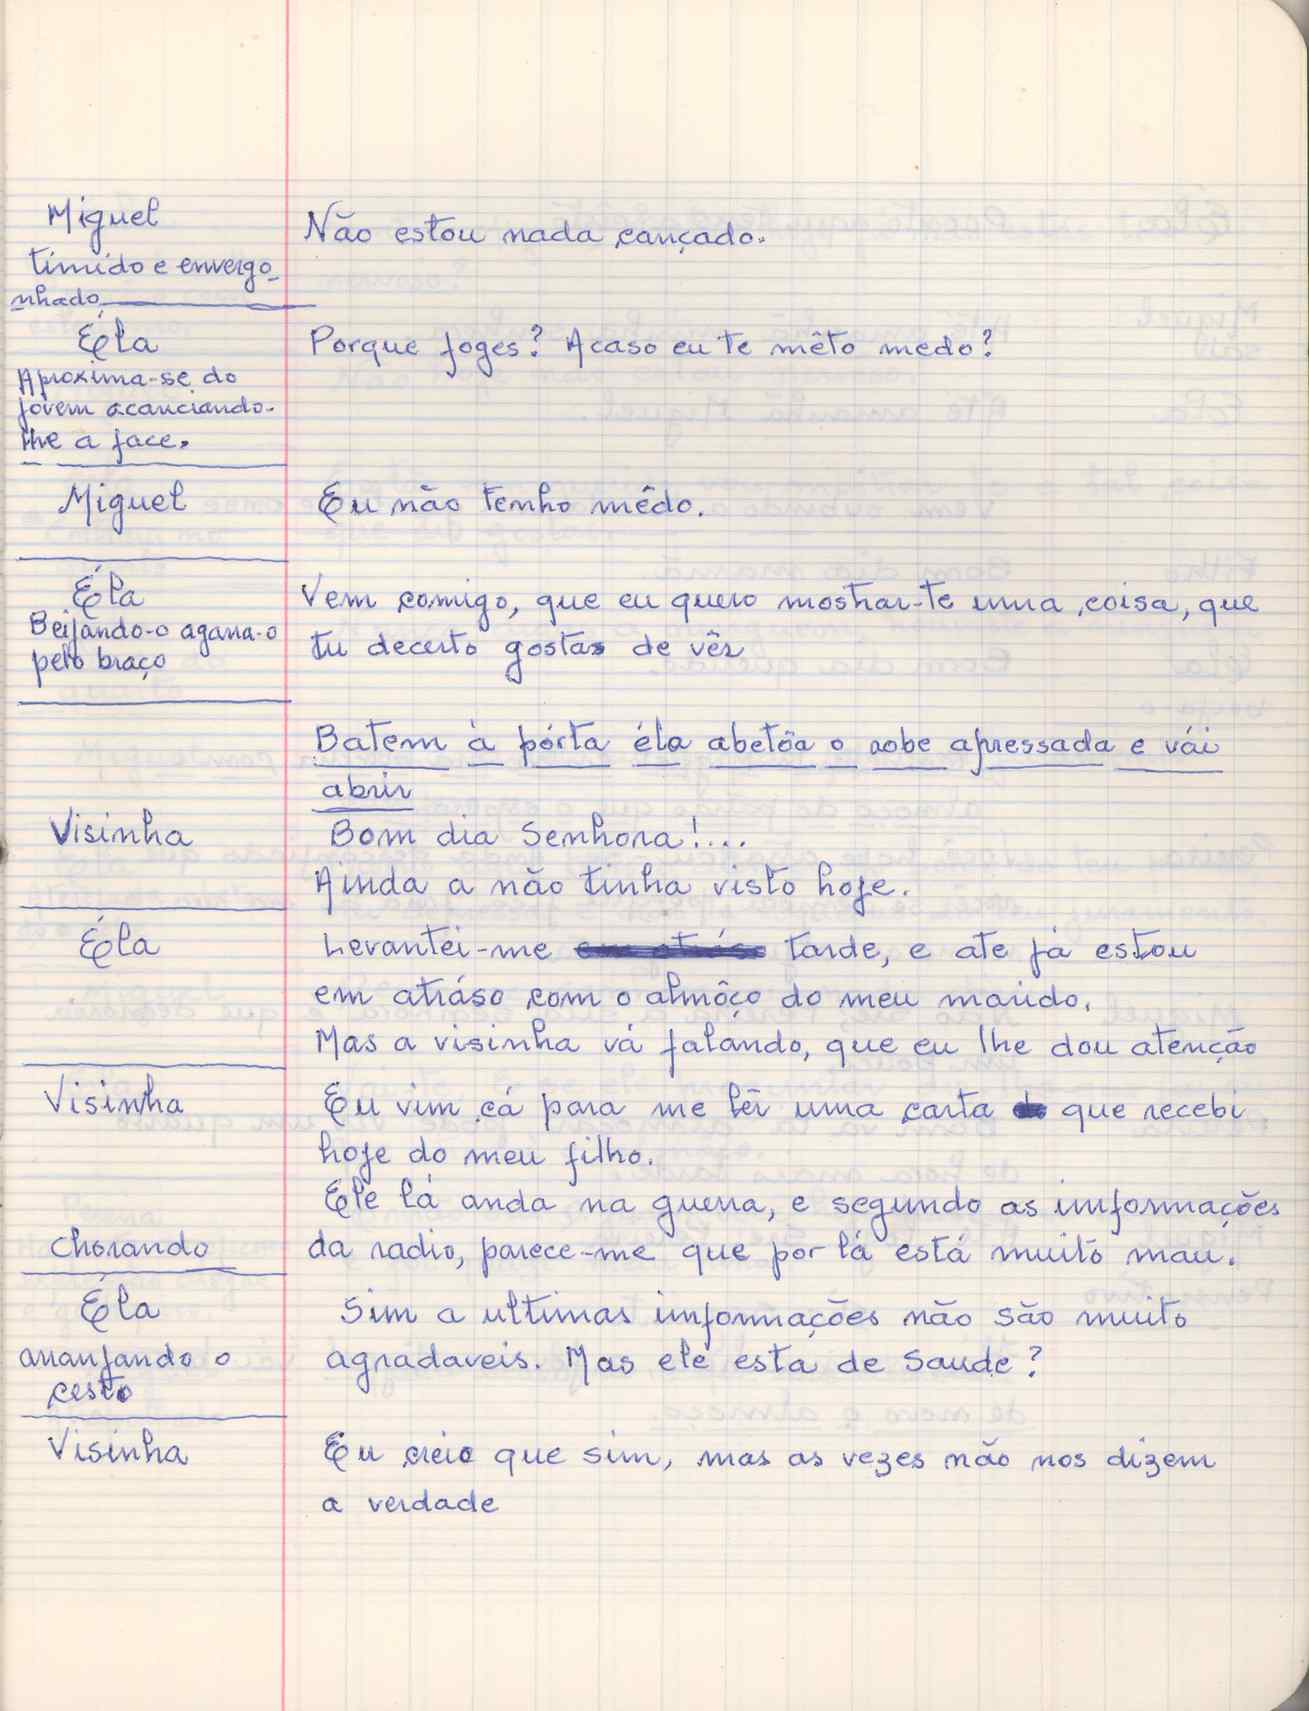 Miguel
Não estou nada cançado.
timido e envergo-
nhado
Éla
Porque foges? Acaso eu te mêto medo?
Aproxima-se do
jovem acariciando-
lhe a face.
Miguel
Eu não tenho mêdo.
Éla
Vem comigo, que eu quero mostrar-te uma coisa, que
Beijando-o agarra-o
tu decerto gostas de vêr
pelo braço
Batem à pórta éla abetôa o robe apressada e vái
abrir
Visinha
Bom dia Senhora!...
Ainda a não tinha visto hoje.
Éla
Levantei-me tarde, e ate já estou
em atráso com o almôço do meu marido.
Mas a visinha vá falando, que eu lhe dou atenção
Visinha
Eu vim cá para me lêr uma carta que recebi
hoje do meu filho.
Ele lá anda na guerra, e segundo as imformações
Chorando
da radio, parece-me que por lá está muito mau.
Éla
Sim a ultimas imformações não são muito
arranjando o
agradaveis. Mas ele esta de Saude?
cesto
Visinha
Eu creio que sim, mas as vezes não nos dizem
a verdade